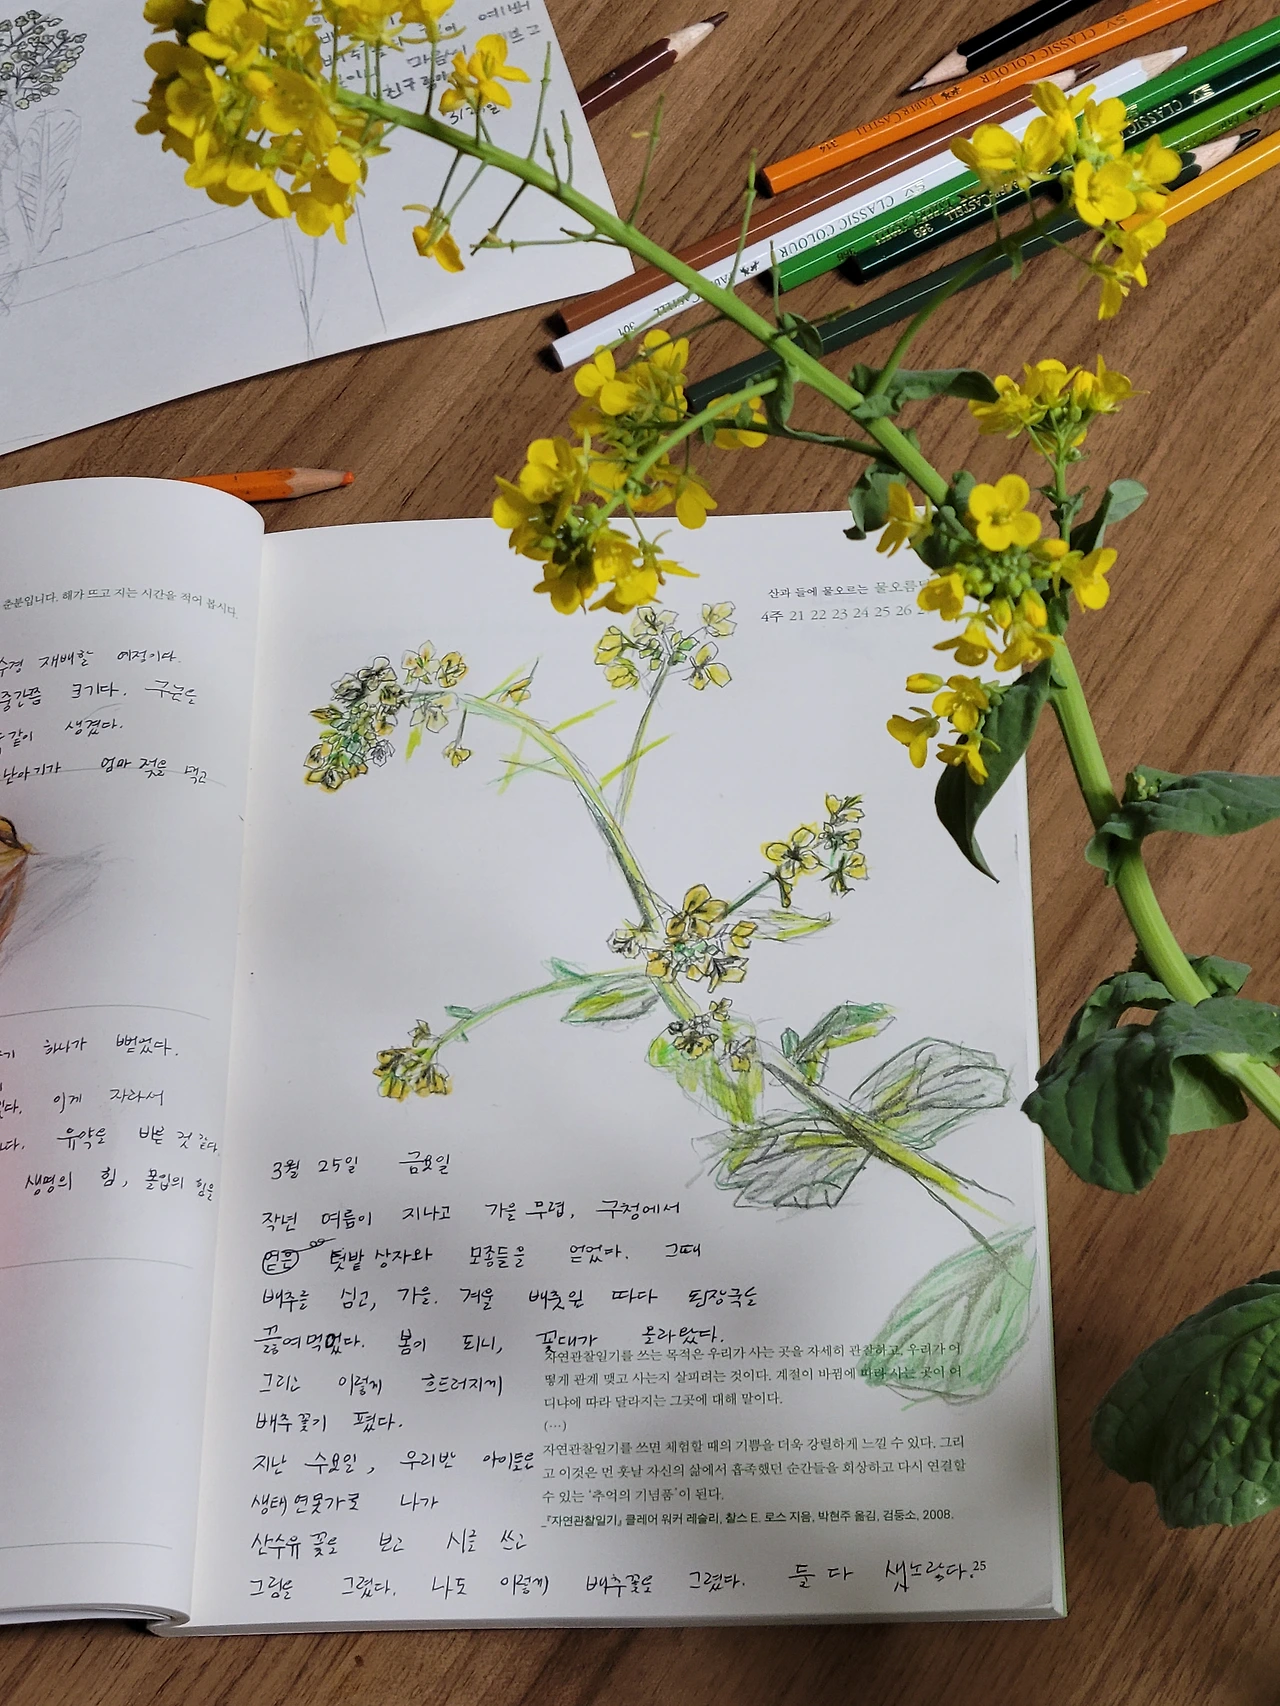 예뻐
마음에
친구
31일
CLASSIC COLOUR
FABER CASTELL
314
CLASSIC COLOUR
301
CLASSIC COLOUR
춘분입니다. 해가 뜨고 지는 시간을 적어 봅시다.
수경 재배할 예정이다.
중간쯤 크기다.
같이 생겼다.
엄마 젖을 먹고
하나가 뻗었다.
이게 자라서
유약을 바른 것 같다
생명의 힘, 몰입의 힘을
산과 들에 물오르는 물오름
4주 21 22 23 24 25 26
3월 25일 금요일
작년 여름이 지나고 가을 무렵, 구청에서
얻은 텃밭 상자와 모종들을 얻었다. 그때
배추를 심고, 가을. 겨울 배춧잎 따다 된장국을
끓여먹었다. 봄이 되니, 꽃대가 올라왔다.
그리고 이렇게 흐드러지게
배추꽃이 폈다.
지난 수요일, 우리반 아이들은
생태연못가로 나가
산수유 꽃을 보고 시를 쓰고
그림을 그렸다. 나도 이렇게 배추꽃을 그렸다. 둘 다 샛노랗다.
자연관찰일기를 쓰는 목적은 우리가 사는 곳을 자세히 관찰하고, 우리가 어
떻게 관계 맺고 사는지 살피려는 것이다. 계절이 바뀜에 따라 사는 곳이 어
디냐에 따라 달라지는 그곳에 대해 말이다.
(…)
자연관찰일기를 쓰면 체험할 때의 기쁨을 더욱 강렬하게 느낄 수 있다. 그리
고 이것은 먼 훗날 자신의 삶에서 흡족했던 순간들을 회상하고 다시 연결할
수 있는 '추억의 기념품'이 된다.
_『자연관찰일기』 클레어 워커 레슬리, 찰스 E. 로스 지음, 박현주 옮김, 검둥소, 2008.
25